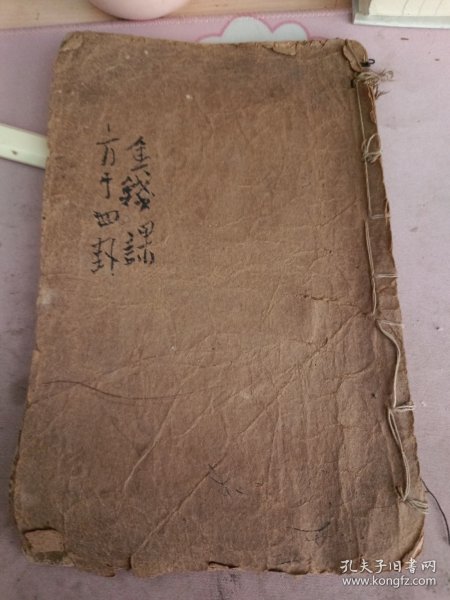 金錢課
六十四卦
孔夫子旧书网
www.kongfz.com